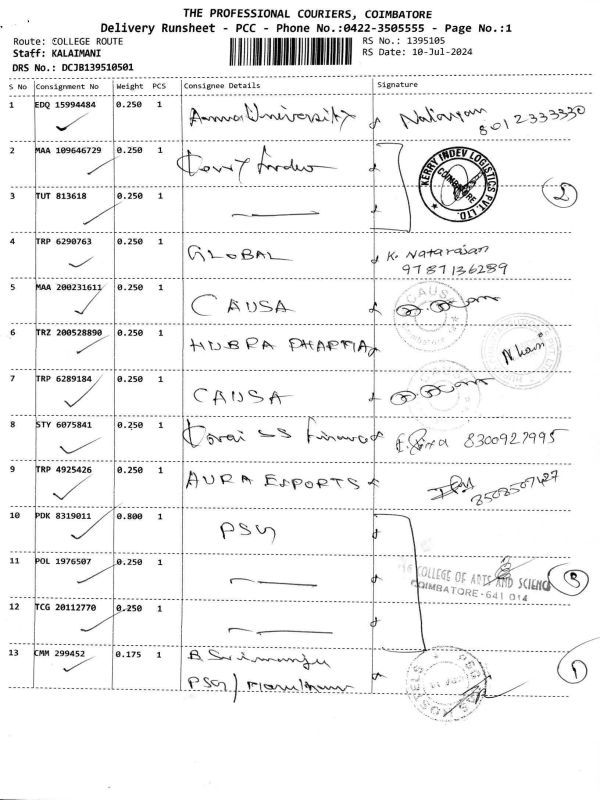 THE PROFESSIONAL COURIERS, COIMBATORE
Delivery Runsheet - PCC - Phone No.:0422-3505555 - Page No.:1
Route: COLLEGE ROUTE
RS No.: 1395105
Staff: KALAIMANI
RS Date: 10-Jul-2024
DRS No.: DCJB139510501
S No Consignment No Weight PCS Consignee Details Signature
1 EDQ 15994484 0.250 1 Anna University
8012333330
2 MAA 109646729 0.250 1 Kerry Indev
KERRY INDEV LOGISTICS PVT. LTD.
COIMBATORE
3 TUT 813618 0.250 1
2
4 TRP 6290763 0.250 1 GLOBAL K. Natarajan
9787136289
5 MAA 200231611 0.250 1 CAUSA
CAUSA
6 TRZ 200528890 0.250 1 HUBRA PHARMA
7 TRP 6289184 0.250 1 CAUSA
8 STY 6075841 0.250 1 8300927995
9 TRP 4925426 0.250 1 AURA EXPORTS
8508507427
10 PDK 8319011 0.800 1 PSG
11 POL 1976507 0.250 1
COLLEGE OF ARTS AND SCIENCE
COIMBATORE-641 014
3
12 TCG 20112770 0.250 1
13 CMM 299452 0.175 1
PSG/
1
HOSTELS